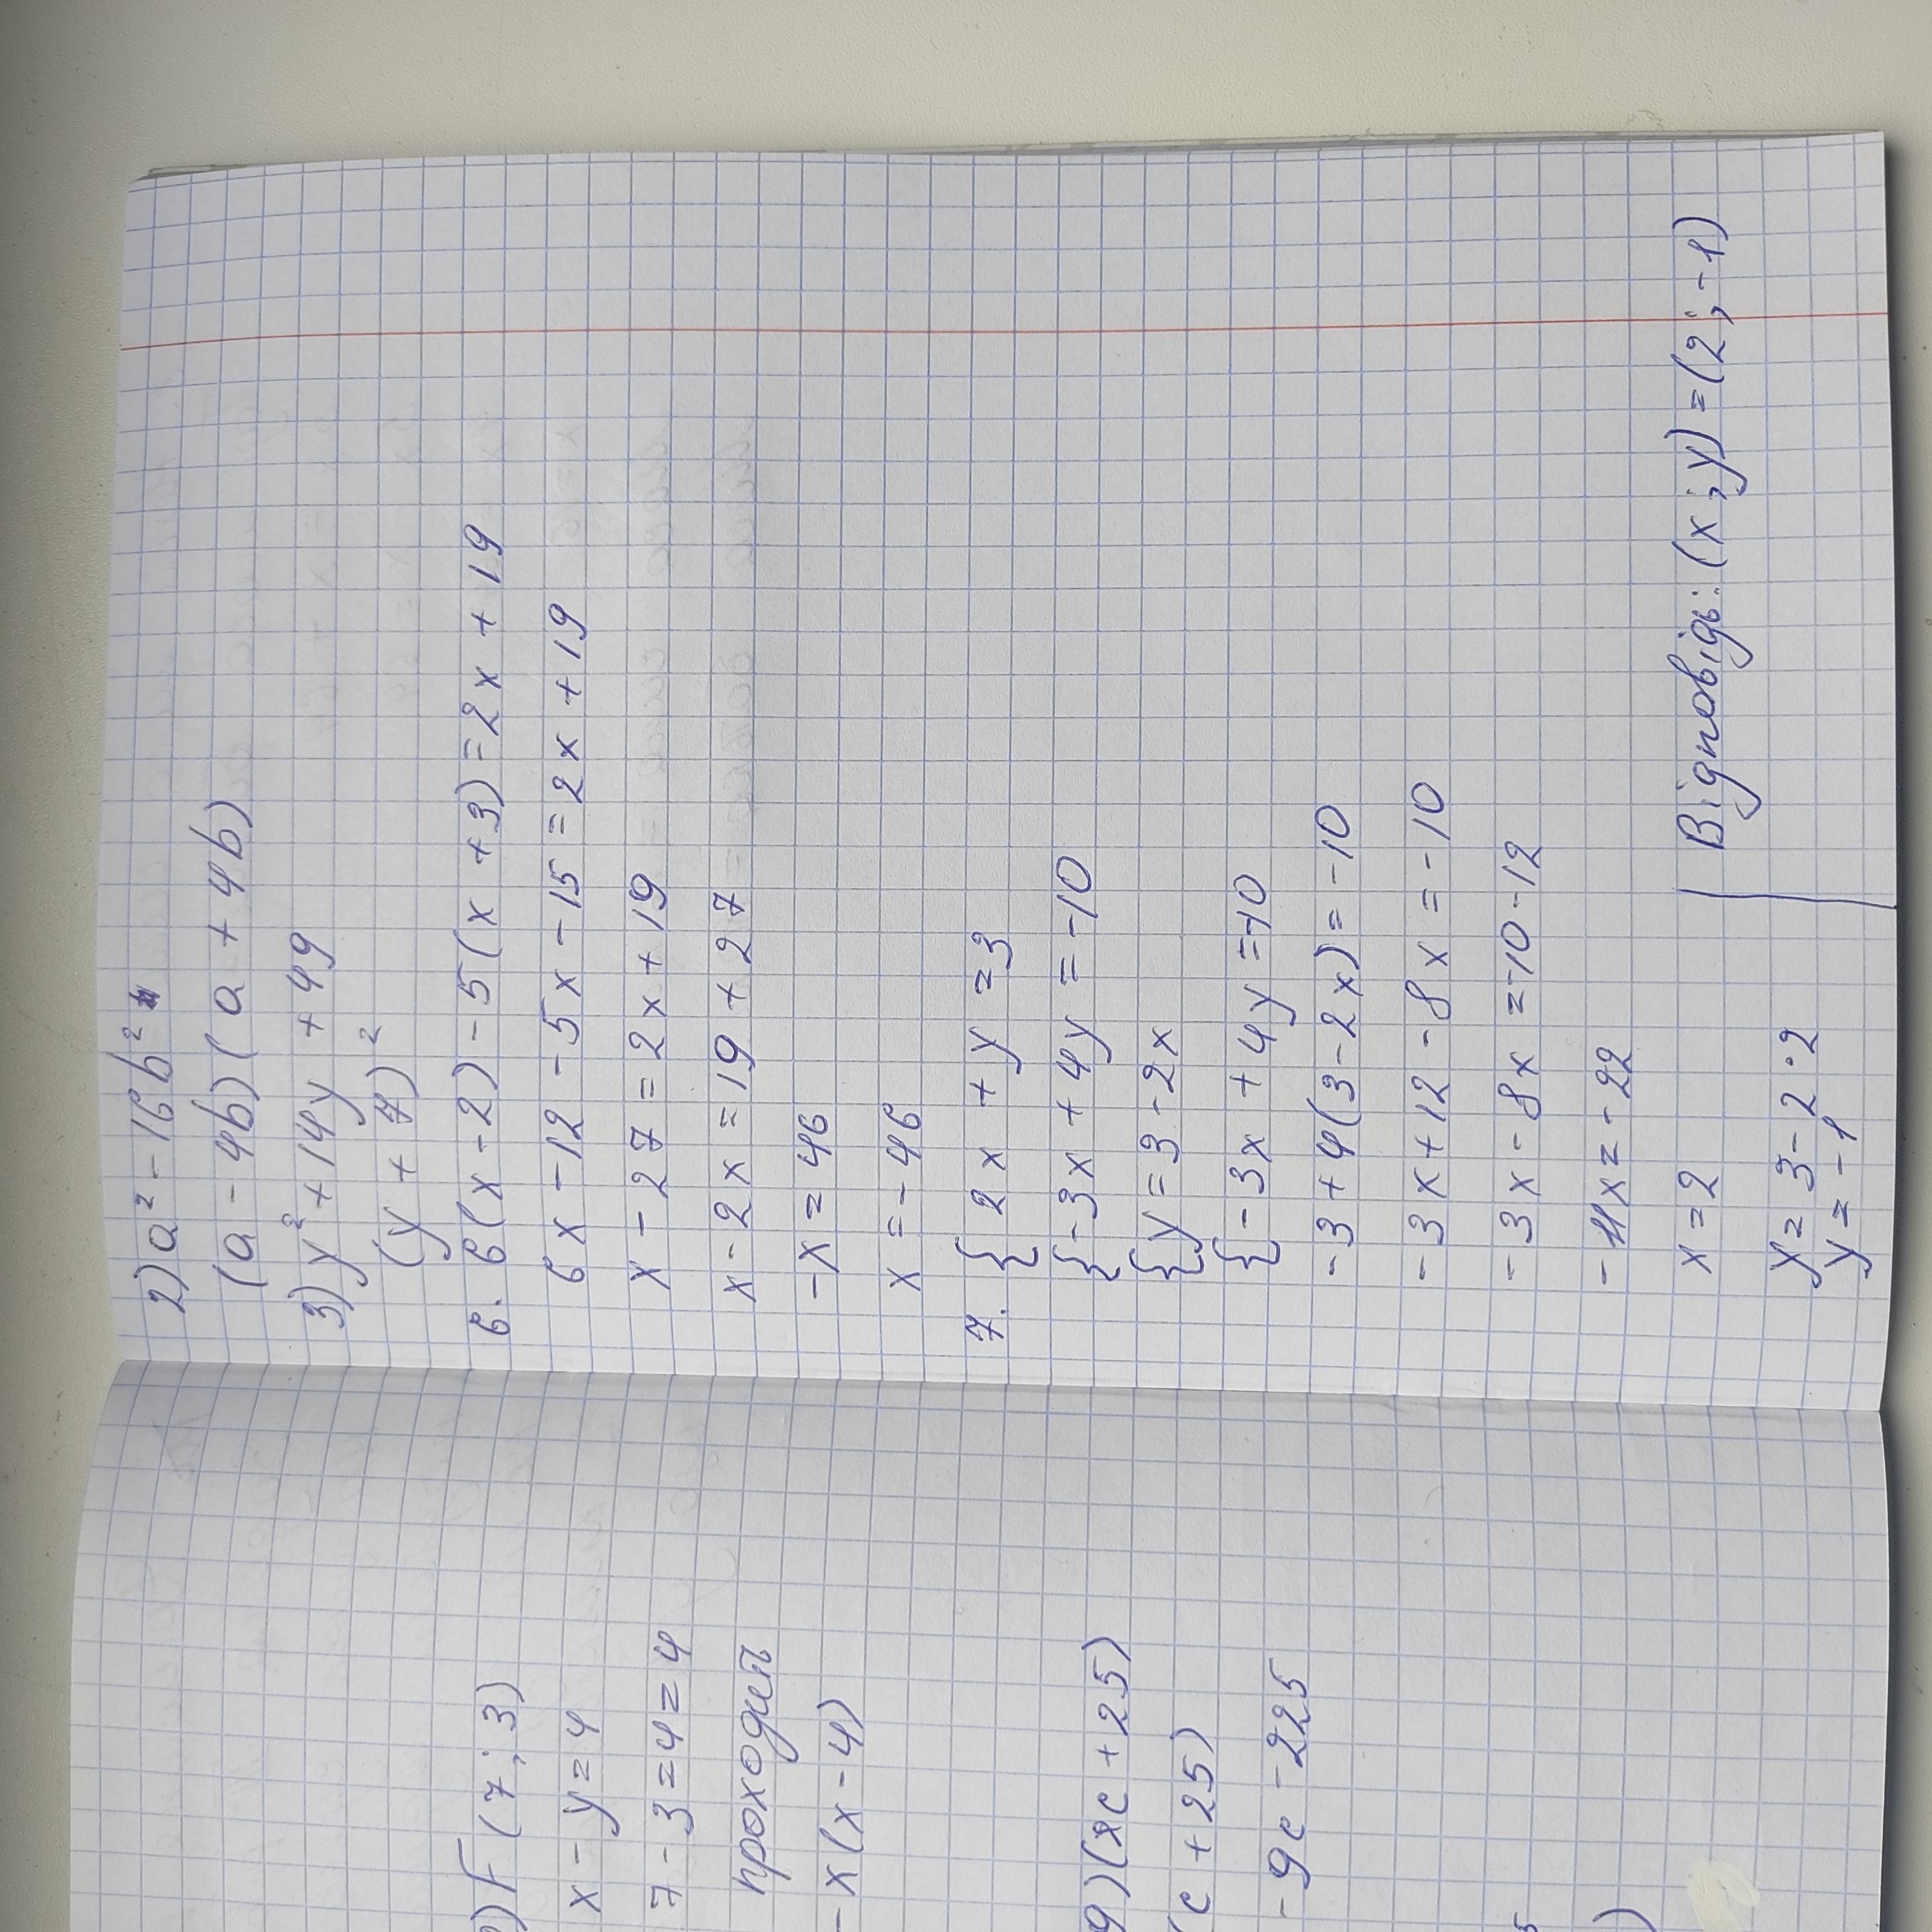 F(7;3)
x-y=4
7-3=4=4
проходит
-x(x-4)
9)(xc+25)
(c+25)
-9c-225
2) a²-16b²
(a-4b)(a+4b)
3) y²+14y+49
(y+7)²
6. 6(x-2)-5(x+3)=2x+19
6x-12-5x-15=2x+19
x-27=2x+19
x-2x=19+27
-x=46
x=-46
7. {2x+y=3
{-3x+4y=-10
{y=3-2x
{-3x+4y=-10
-3+4(3-2x)=-10
-3x+12-8x=-10
-3x-8x=-10-12
-11x=-22
x=2
y=3-2·2
y=-1
Відповідь: (x;y)=(2;-1)